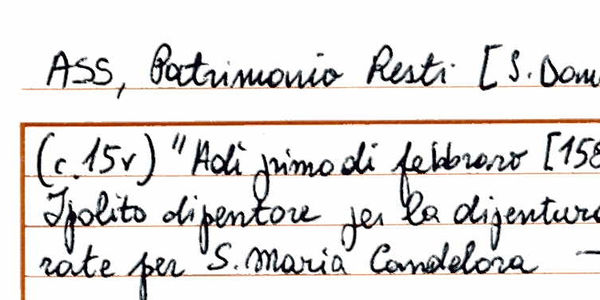 ASS, Patrimonio Resti [S. Dom
(c.15v) "Adi primo di febbraro [158
Ipolito dipentore per la dipentur
rate per S. Maria Candelora —